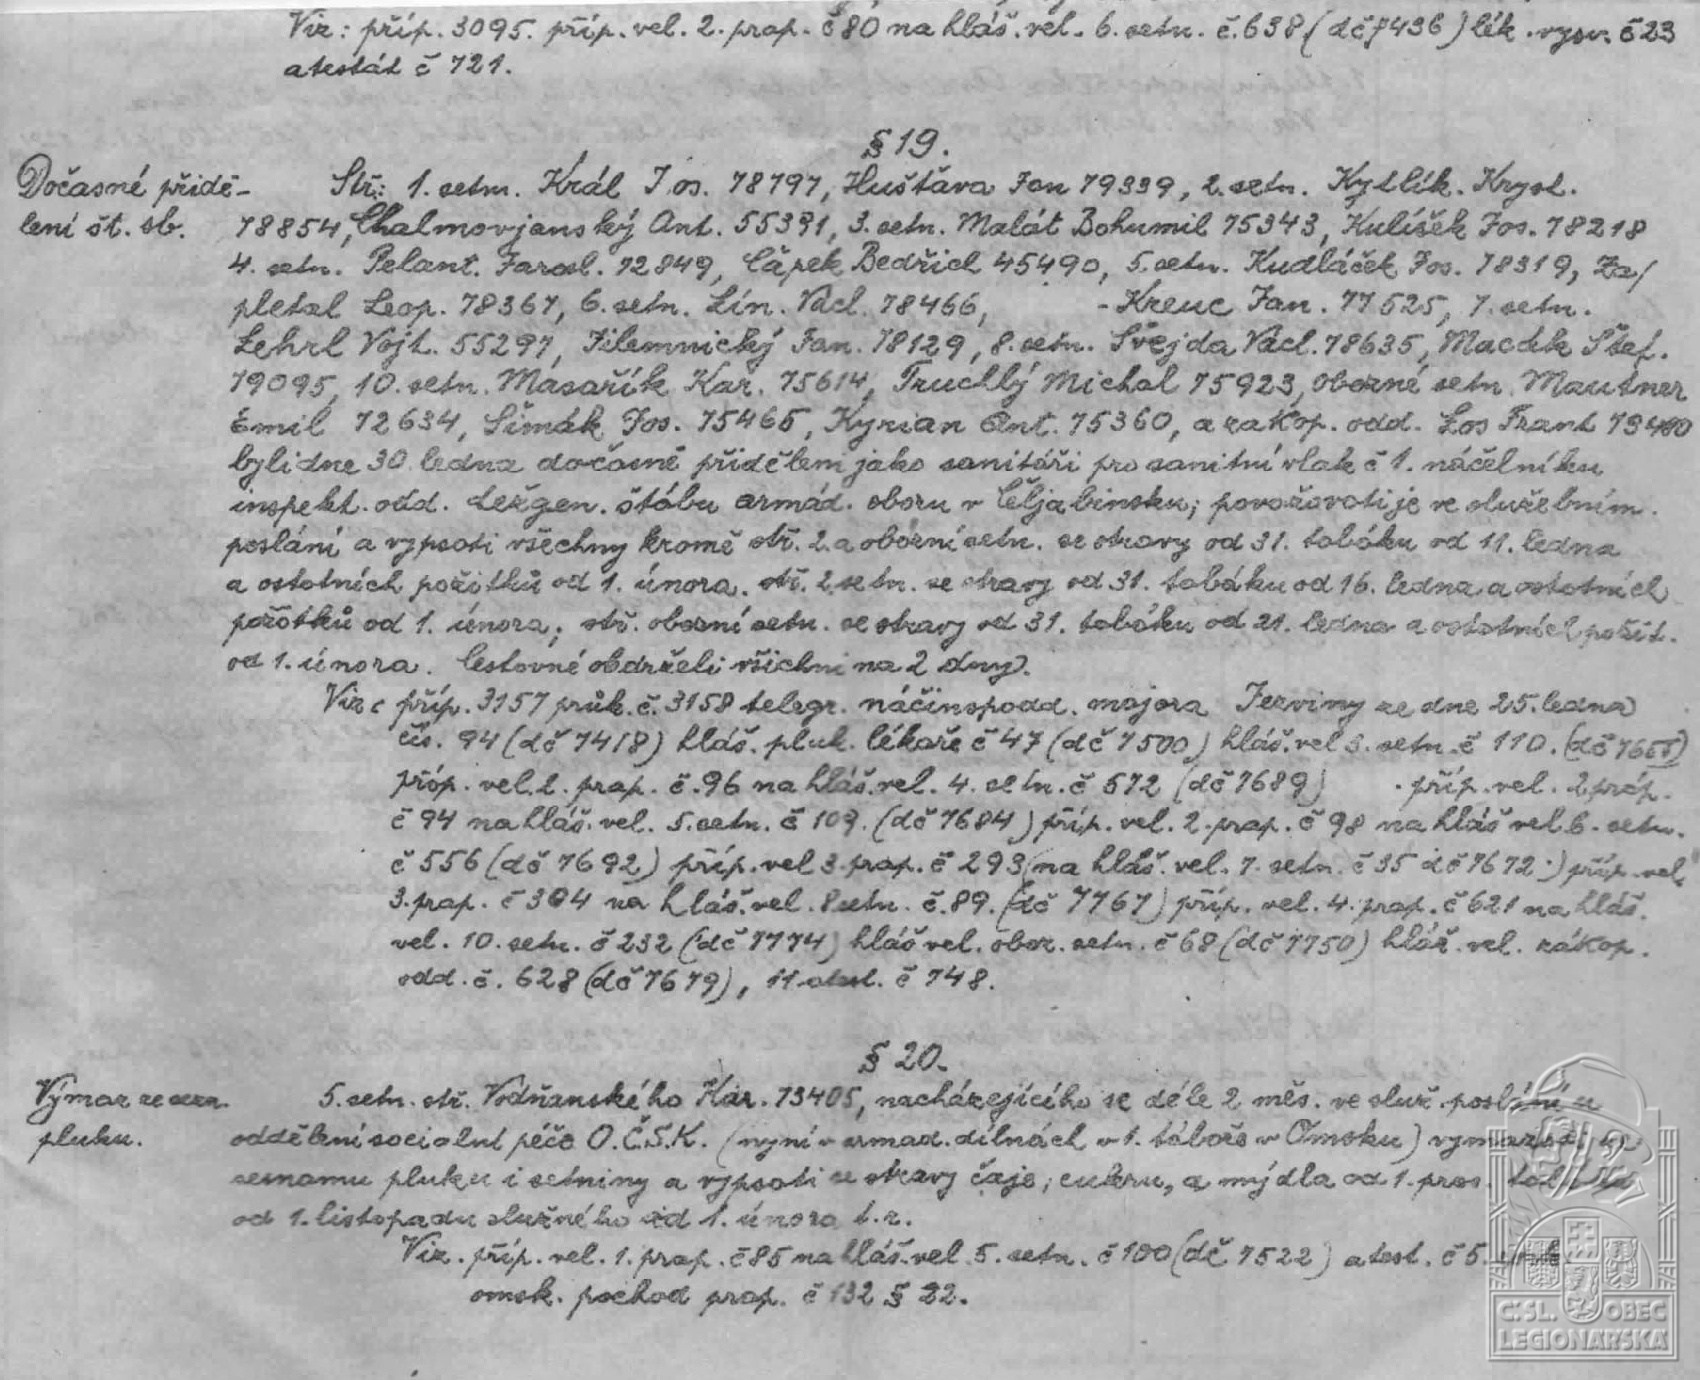 Viz: příp. 3095. příp. vel. 2. prap. č 80 na hláš. vel. 6. setn. č. 638 (dč 7436) lék. vysv. č 23
atestát č 721.
§ 19.
Dočasné přidě-
lení št. sb.
Stř.: 1. setn. Král Jos. 78797, Hušťava Jan 79339, 2. setn. Kytlík. Kryst.
78854, Chalmovjanský Ant. 55391, 3. setn. Malát Bohumil 75343, Kulíšek Jos. 78218
4. setn. Pelant. Jarosl. 72849, Čápek Bedřich 45490, 5. setn. Kudláček Jos. 78319, Za/
pletal Leop. 78367, 6. setn. Lín. Václ. 78466, - Kreuc Jan. 77525, 7. setn.
Lehrl Vojt. 55297, Jilemnický Jan. 78129, 8. setn. Švejda Václ. 78635, Macák Štef.
79095, 10. setn. Masařík Kar. 75614, Truchlý Michal 75923, obozné setn. Mautner
Emil 72634, Šimák Jos. 75465, Kyrian Ant. 75360, a zakop. odd. Los Frant 79480
byli dne 30 ledna dočasně přiděleni jako sanitáři pro sanitní vlak č 1. náčelníku
inspekt. odd. štábu armád. sboru v Čeljabinsku; považovati je ve služebním.
poslání a vypsati všechny kromě stř. 2. a obozní setn. se stravy od 31. tabáku od 11. ledna
a ostatních požitků od 1. února. stř. 2. setn. se stravy od 31. tabáku od 16. ledna a ostatních
požitků od 1. února; stř. obozní setn. se stravy od 31. tabáku od 21. ledna a ostatních požit.
od 1. února. Cestovné obdrželi všichni na 2 dny.
Viz: příp. 3157 průk. č. 3158 telegr. náčinspodd. majora Jerviny ze dne 25. ledna
čís. 94 (dč 7418) hláš. pluk. lékaře č 47 (dč 7500) hláš. vel 3. setn. č 110. (dč
příp. vel. 2. prap. č. 96 na hláš. vel. 4. setn. č 572 (dč 7689) příp. vel. 2 prap.
č 94 na hláš. vel. 5. setn. č 109. (dč 7684) příp. vel. 2. prap. č 98 na hláš vel. 6. setn.
č 556 (dč 7692) příp. vel 3. prap. č 293 (na hláš. vel. 7. setn. č 35 dč 7672.) příp. vel.
3. prap. č 304 na hláš. vel. 8 setn. č. 89. (dč 7767) příp. vel. 4. prap. č 621 na hláš.
vel. 10. setn. č 232 (dč 7774) hláš vel. oboz. setn. č 68 (dč 7750) hláš. vel. zákop.
odd. č. 628 (dč 7679), 11. atest. č 748.
§ 20.
Výmaz ze sezn.
pluku.
5. setn. stř. Vodňanského Kar. 73405, nacházejícího se déle 2 měs. ve služ. poslání u
oddělení socialní péče O.Č.S.K. (nyní v armad. dílnách v 1. táboře v Omsku) vymazati ze
seznamu pluku i setniny a vypsati se stravy čaje, cukru, a mýdla od 1. pros. tabáku
od 1. listopadu služného od 1. února t. r.
Viz. příp. vel. 1. prap. č 85 na hláš. vel. 5. setn. č 100 (dč 7522) atest. č 5.
omsk. pochod prap. č 132 § 22.
ČSL. OBEC
LEGIONÁŘSKÁ